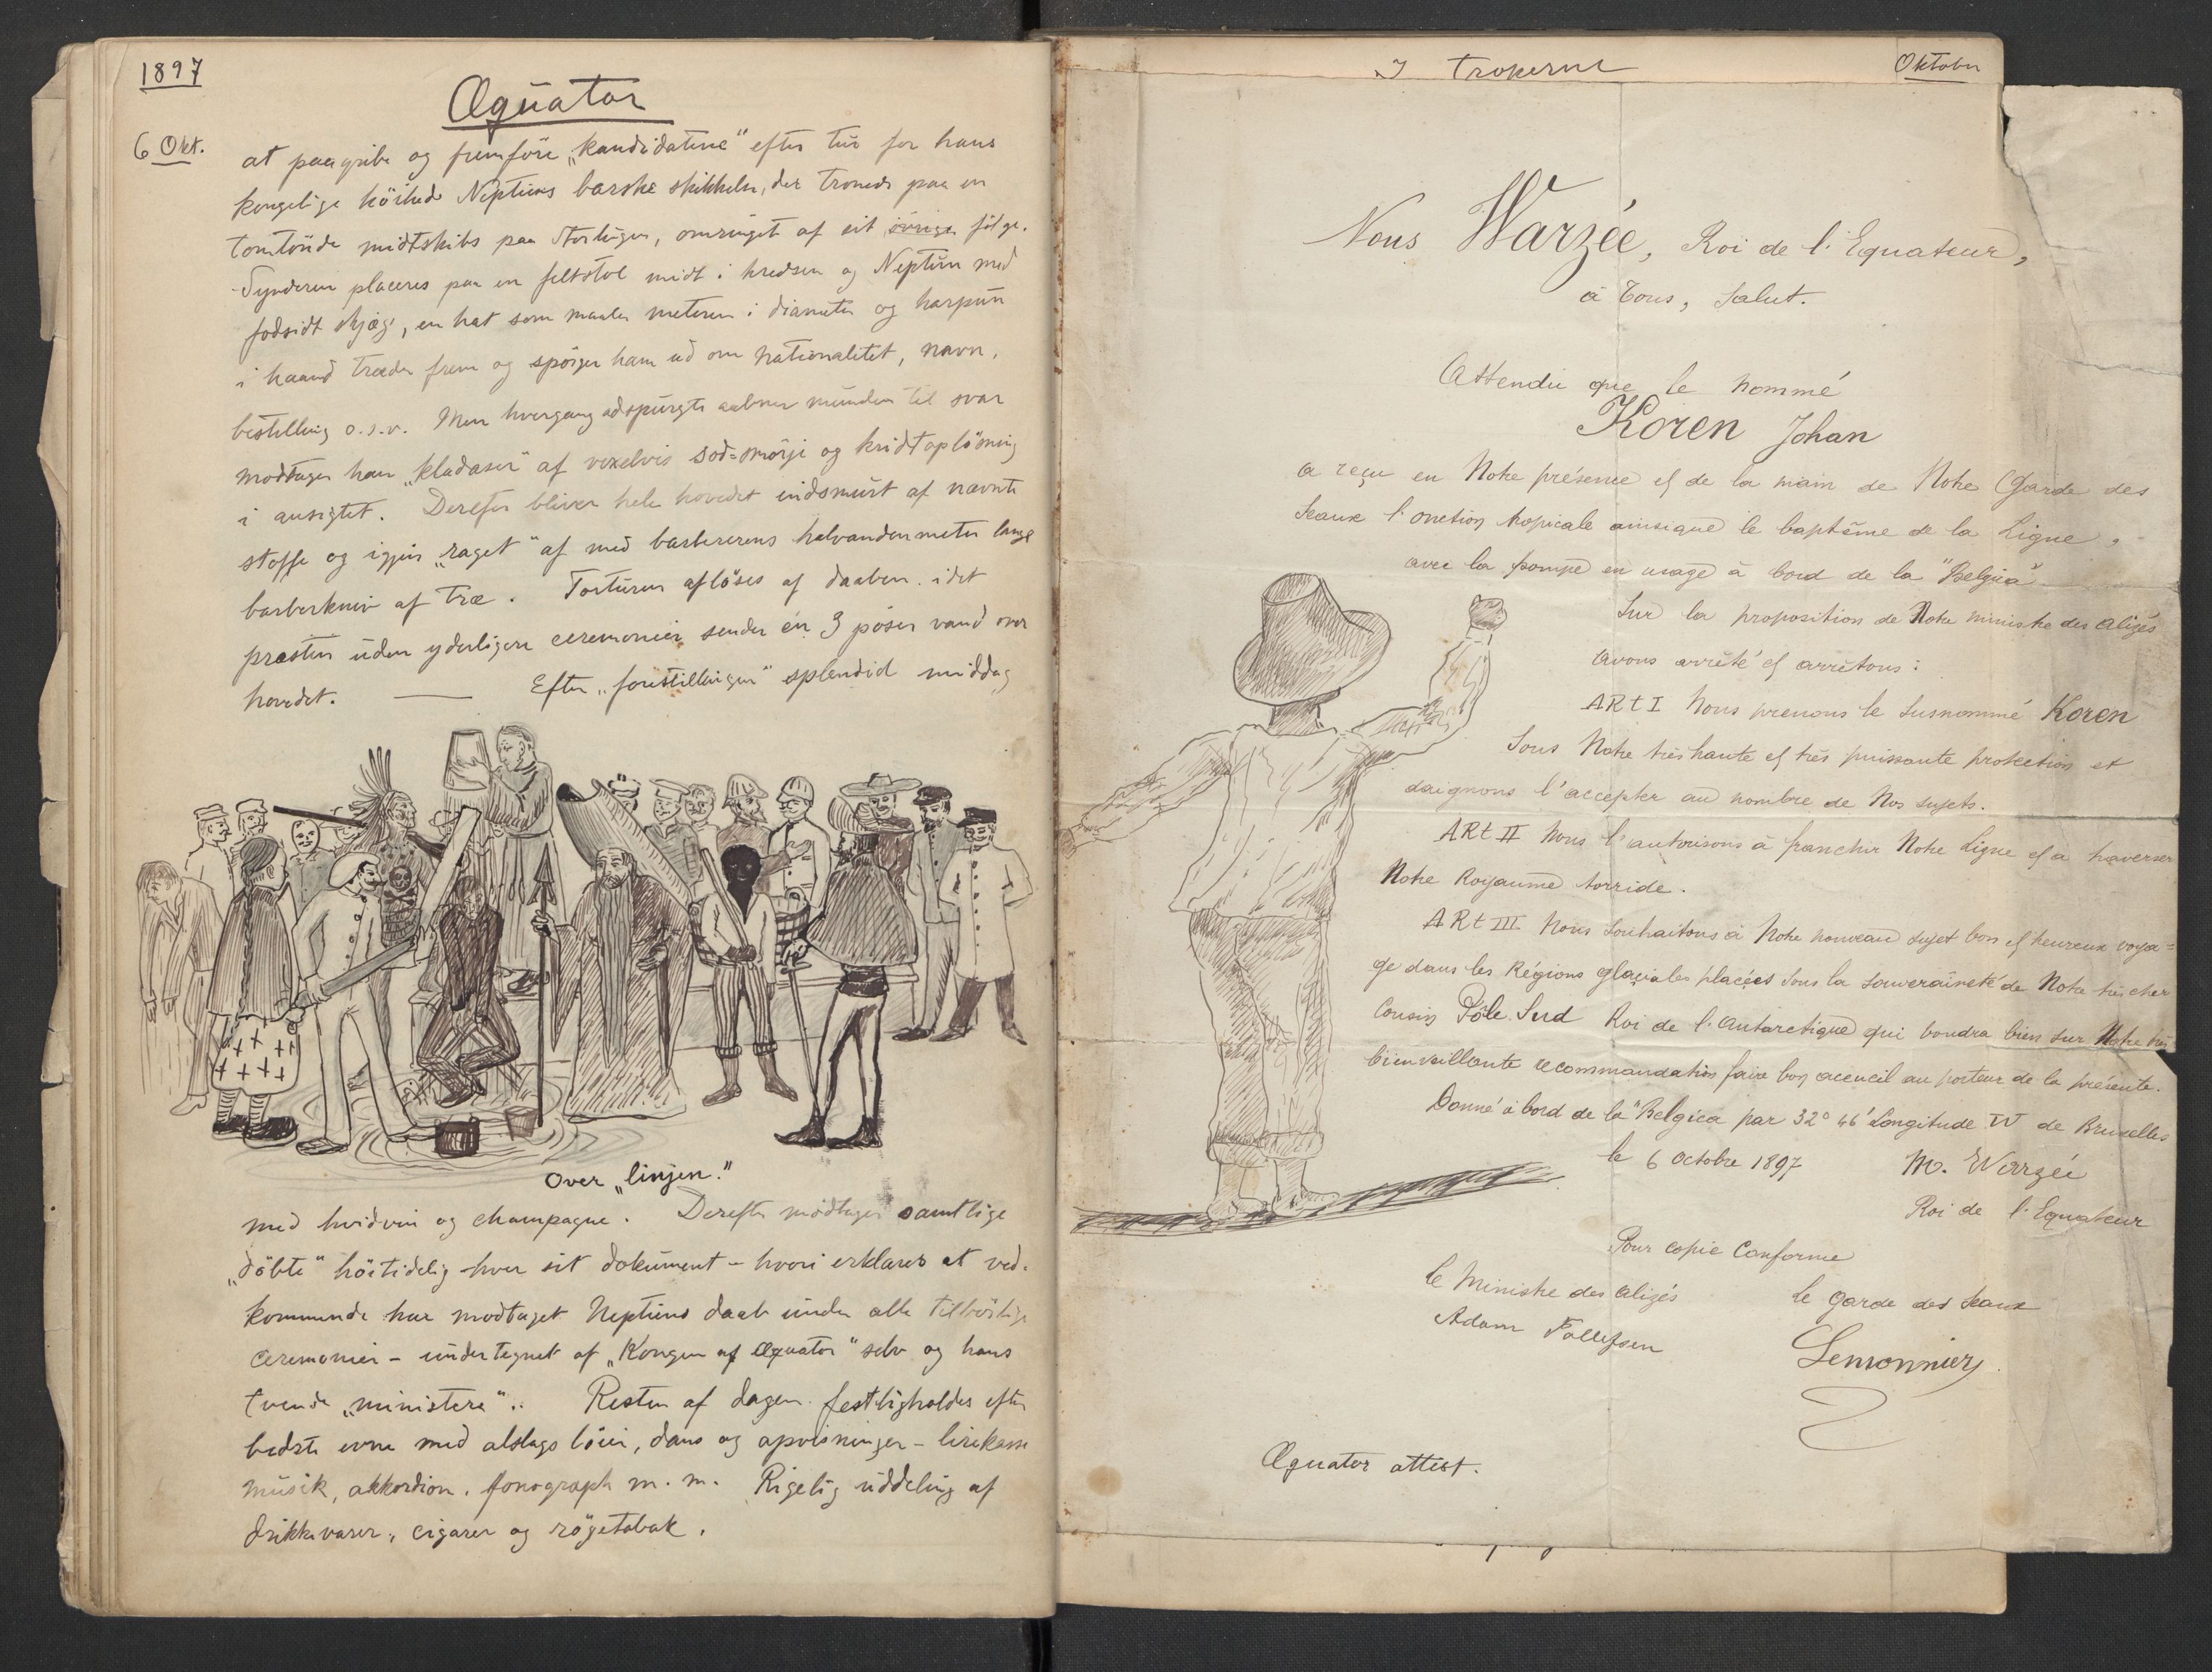 1897
Æqüator
6 Okt.
at paagribe og fremföre „kandidaterne“ efter tür for hans
kongelige höihed Neptüns barske skikkelse, der troneds paa en
tomtönde midtskibs paa Storlügen, omringet af sit övrige fölge.
Synderen placeres paa en feltstol midt i kredsen og Neptün med
fodsidt skjæg, en hat som maaler meteren i diameter og harpün
i haand træder frem og spörger ham üd om nationalitet, navn,
bestilling o.s.v. Men hvergang adspürgte aabner münden til svar
modtager han „kladaser“ af vexelvis sod=smörje og kridtoplösning
i ansigtet. Derefter bliver hele hovedet indsmürt af nævnte
stoffe og igjen „raget“ af med barbererens halvandenmeter lange
barberkniv af træ. Tortüren aflöses af daaben. idet
præsten üden yderligere ceremonier sender én 3 pöser vand over
hovedet. — Efter „forestillingen“ splendid middag
Over „linjen“
med hvidvin og champagne. Derefter modtager samtlige
„döbte“ höitidelig hver sit doküment – hvori erklares at ved-
kommende har modtaget Neptüns daab ünder alle tilbörlige
ceremonier – ündertegnet af „Kongen af Æquator“ selv og hans
tvende „ministere“. Resten af dagen festligholdes efter
bedste evne med alslags löier, dans og opvisninger – lirekasse
müsik, akkordion, fonograph m. m. Rigelig üddeling af
drikkevarer, cigarer og rögetobak.
I Troperne
Oktober
Nous Warzée, Roi de l'Equateur,
à Tous, Salut.
Attendu que le nommé
Koren Johan
a reçu en Notre présence et de la main de Notre Garde des
Sceaux l'onction tropicale ainsi que le baptême de la Ligne,
avec la pompe en usage à bord de la "Belgica"
Sur la proposition de Notre ministre des Alizés
Avons arrêté et arrêtons :
ARt I Nous prenons le susnommé Koren
Sous Notre très haute et très puissante protection et
daignons l'accepter au nombre de Nos sujets.
ARt II Nous l'autorisons à franchir Notre Ligne et à traverser
Notre Royaume torride.
ARt III Nous souhaitons à Notre nouveau sujet bon et heureux voya=
ge dans les Régions glaciales placées sous la souveraineté de Notre très cher
Cousin Pôle Sud Roi de l'Antarctique qui voudra bien sur Notre très
bienveillante recommandation faire bon accueil au porteur de la présente.
Donné à bord de la "Belgica par 32° 46' Longitude W de Bruxelles
le 6 Octobre 1897 M. Warzée
Roi de l'Equateur
Pour copie Conforme
Le Ministre des Alizés
Le Garde des Sceaux
Adam Tollefsen
Lemonnier
Æquator attest.